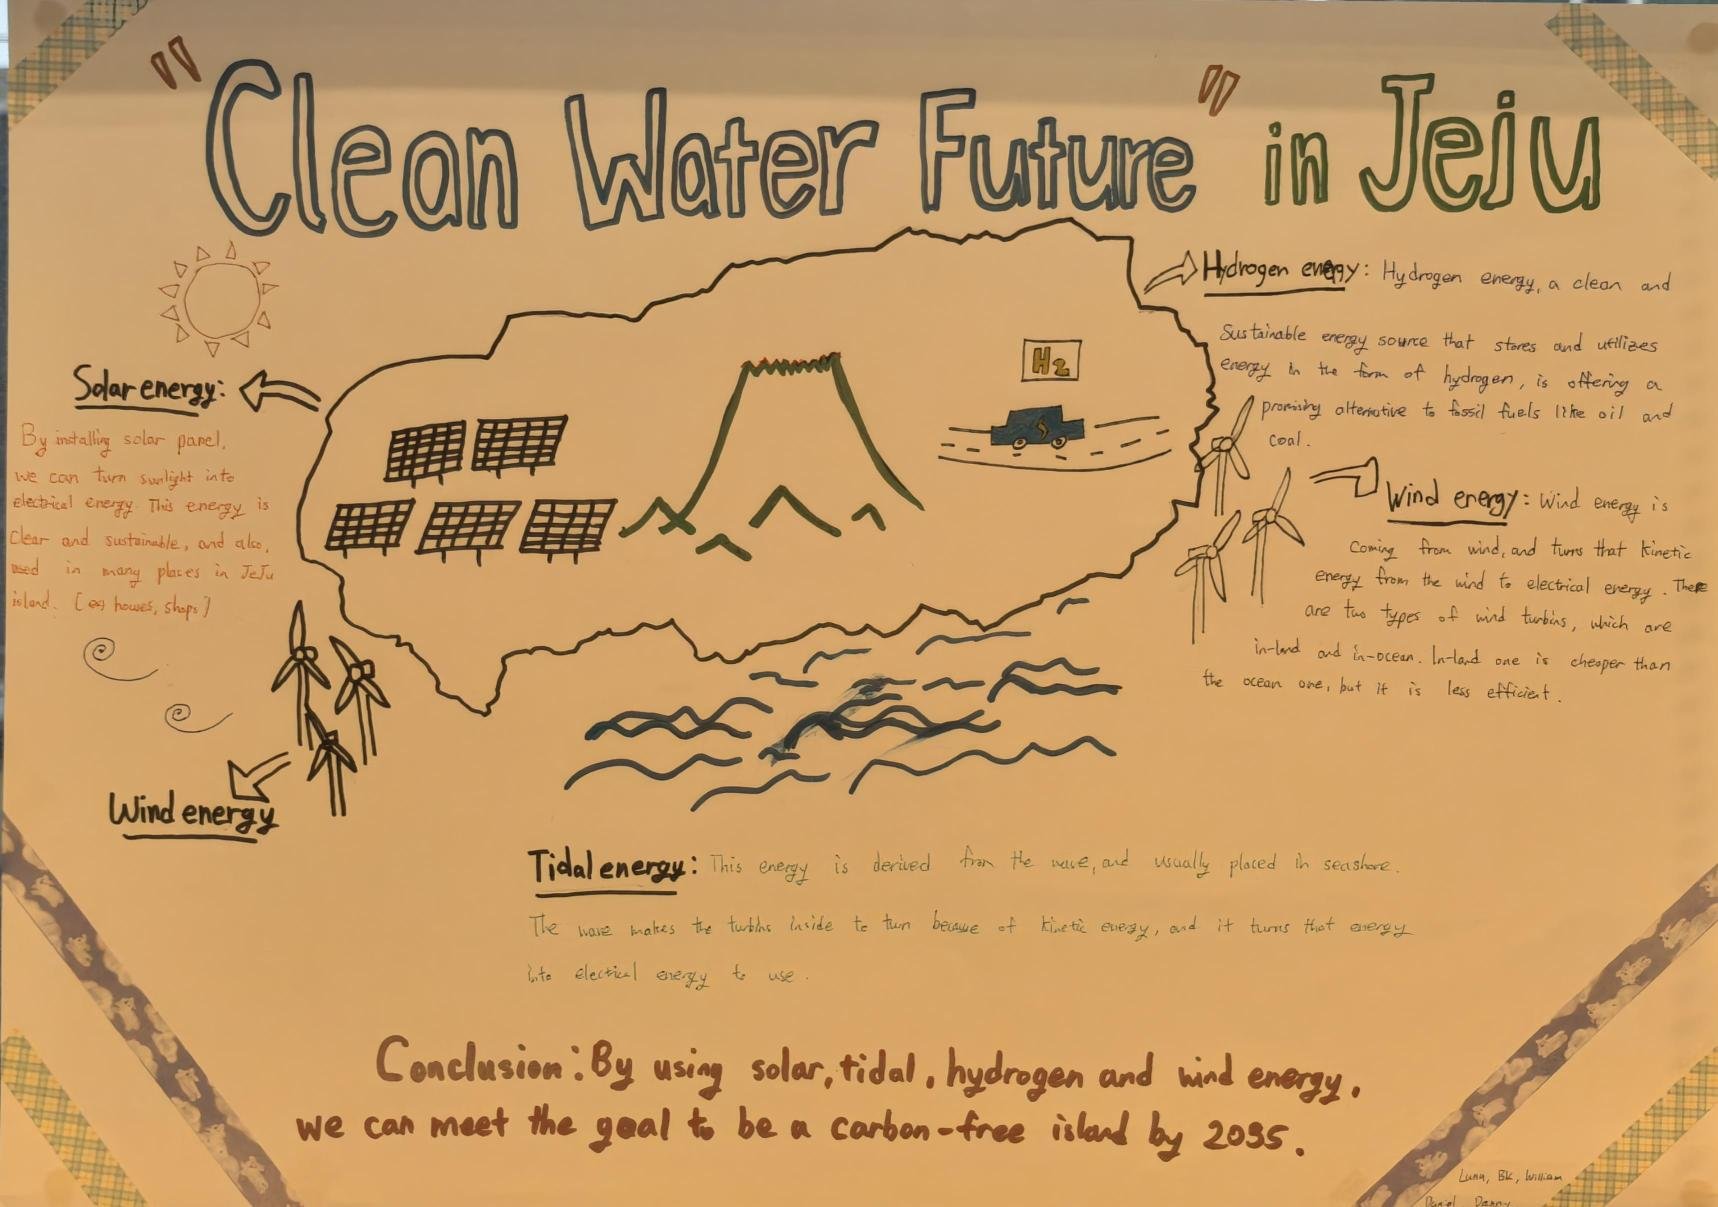 "Clean Water Future" in Jeju
Hydrogen energy: Hydrogen energy, a clean and
Sustainable energy source that stores and utilizes
energy in the form of hydrogen, is offering a
promising alternative to fossil fuels like oil and
coal.
H2
Solar energy:
By installing solar panel,
we can turn sunlight into
electrical energy. This energy is
Clear and sustainable, and also,
used in many places in JeJu
island. (eg houses, shops)
Wind energy: Wind energy is
coming from wind, and turns that kinetic
energy from the wind to electrical energy. There
are two types of wind turbins, which are
in-land and in-ocean. In-land one is cheaper than
the ocean one, but it is less efficient.
Wind energy
Tidal energy: This energy is derived from the wave, and usually placed in seashore.
The wave makes the turbins inside to turn because of kinetic energy, and it turns that energy
into electical energy to use.
Conclusion: By using solar, tidal, hydrogen and wind energy,
we can meet the goal to be a carbon-free island by 2035.
Luna, BK, William
Daniel Danny